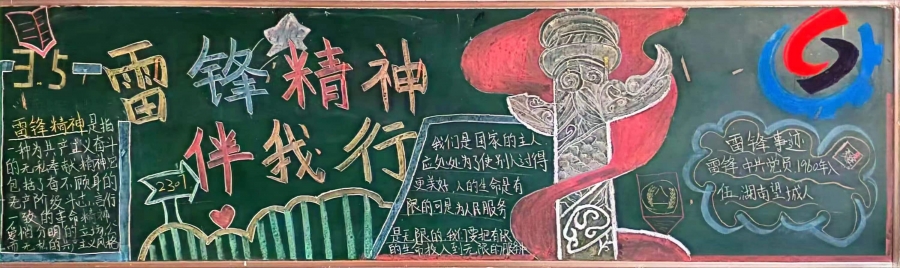 3.5
雷锋精神
伴我行
雷锋精神是指
一种为共产主义奋斗
的无私奉献精神它
包括了奋不顾身的
无产阶级斗志,言行
一致的革命精神
爱憎分明的主场公
而无私的共产主义风格
2201
我们是国家的主人
应处处为了使别人过得
更美好,人的生命是有
限的可是为人民服务
是无限的,我们要把有限
的生命投入到无限的服务
八一
雷锋事迹
雷锋,中共党员,1960年入
伍,湖南望城人